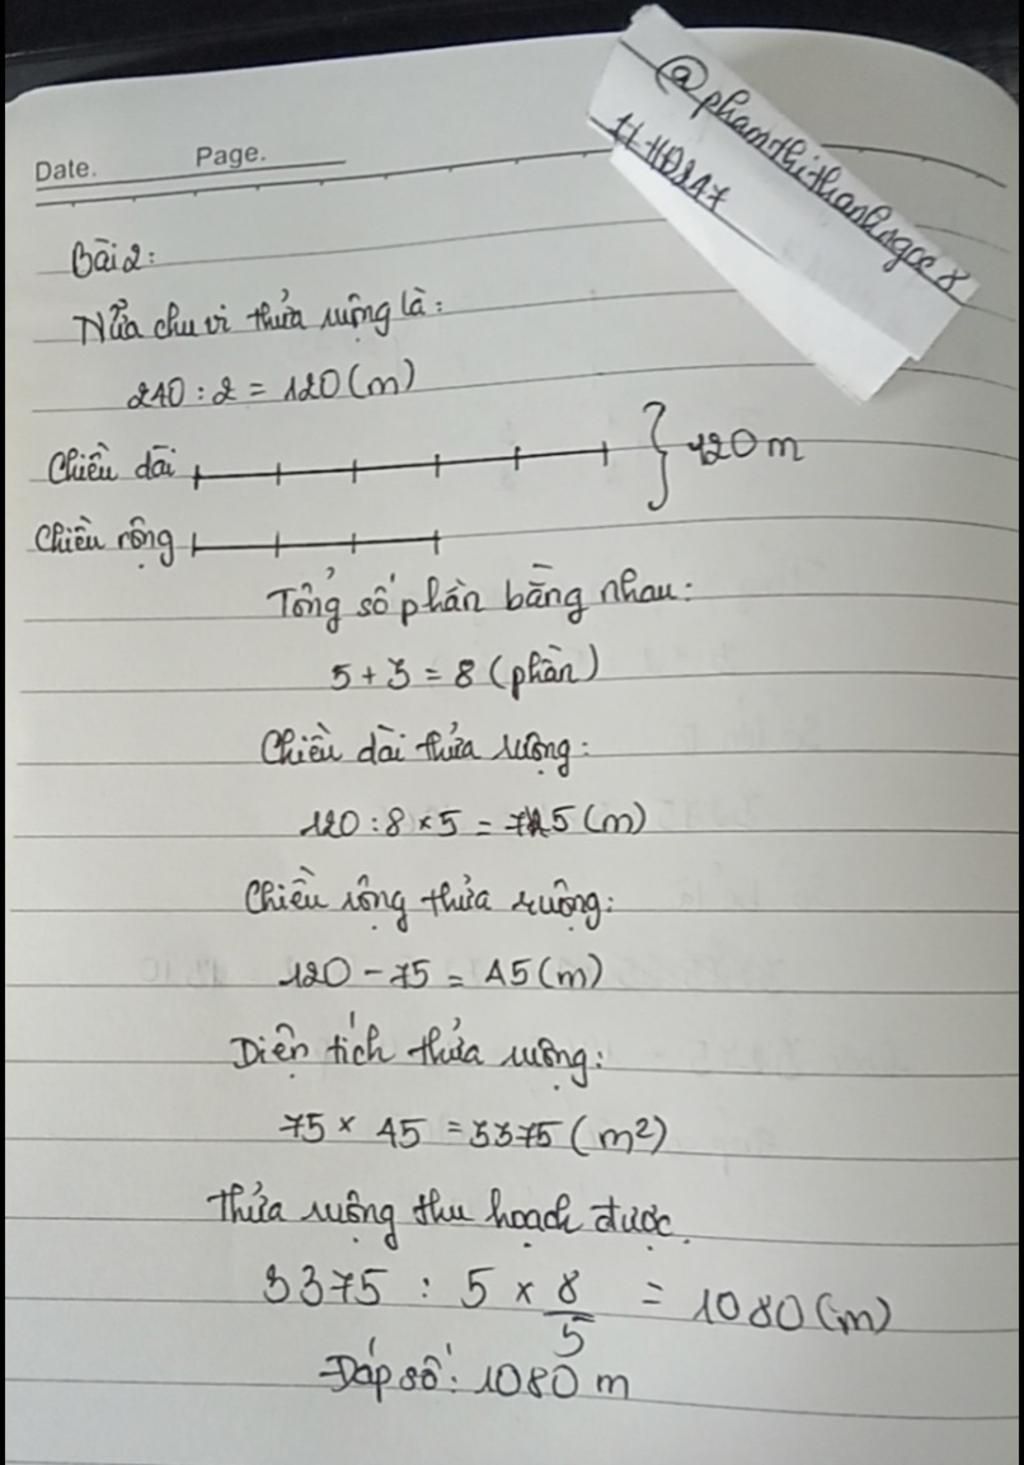 Date. Page.
@phamthithanhngoc8
Bài 2:
Nửa chu vi thửa ruộng là:
240 : 2 = 120 (m)
Chiều dài
120 m
Chiều rộng
Tổng số phần bằng nhau:
5 + 3 = 8 (phần)
Chiều dài thửa ruộng:
120 : 8 × 5 = 75 (m)
Chiều rộng thửa ruộng:
120 - 75 = 45 (m)
Diện tích thửa ruộng:
75 × 45 = 3375 (m²)
Thửa ruộng thu hoạch được.
3375 : 5 × 8/5 = 1080 (m)
Đáp số: 1080 m